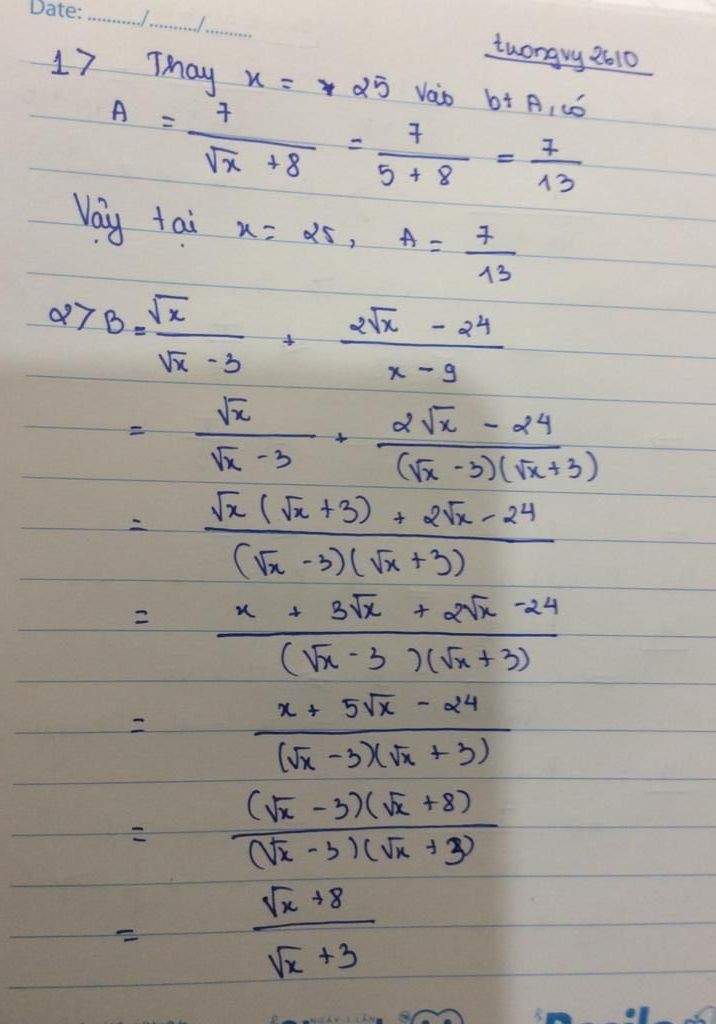 Date: ........../........./..........
tuongvy2610
1> Thay x = 25 vào bt A, có
A = 7/(√x + 8) = 7/(5 + 8) = 7/13
Vậy tại x = 25, A = 7/13
2> B = √x/(√x - 3) + (2√x - 24)/(x - 9)
= √x/(√x - 3) + (2√x - 24)/((√x - 3)(√x + 3))
= (√x (√x + 3) + 2√x - 24)/((√x - 3)(√x + 3))
= (x + 3√x + 2√x - 24)/((√x - 3)(√x + 3))
= (x + 5√x - 24)/((√x - 3)(√x + 3))
= ((√x - 3)(√x + 8))/((√x - 3)(√x + 3))
= (√x + 8)/(√x + 3)